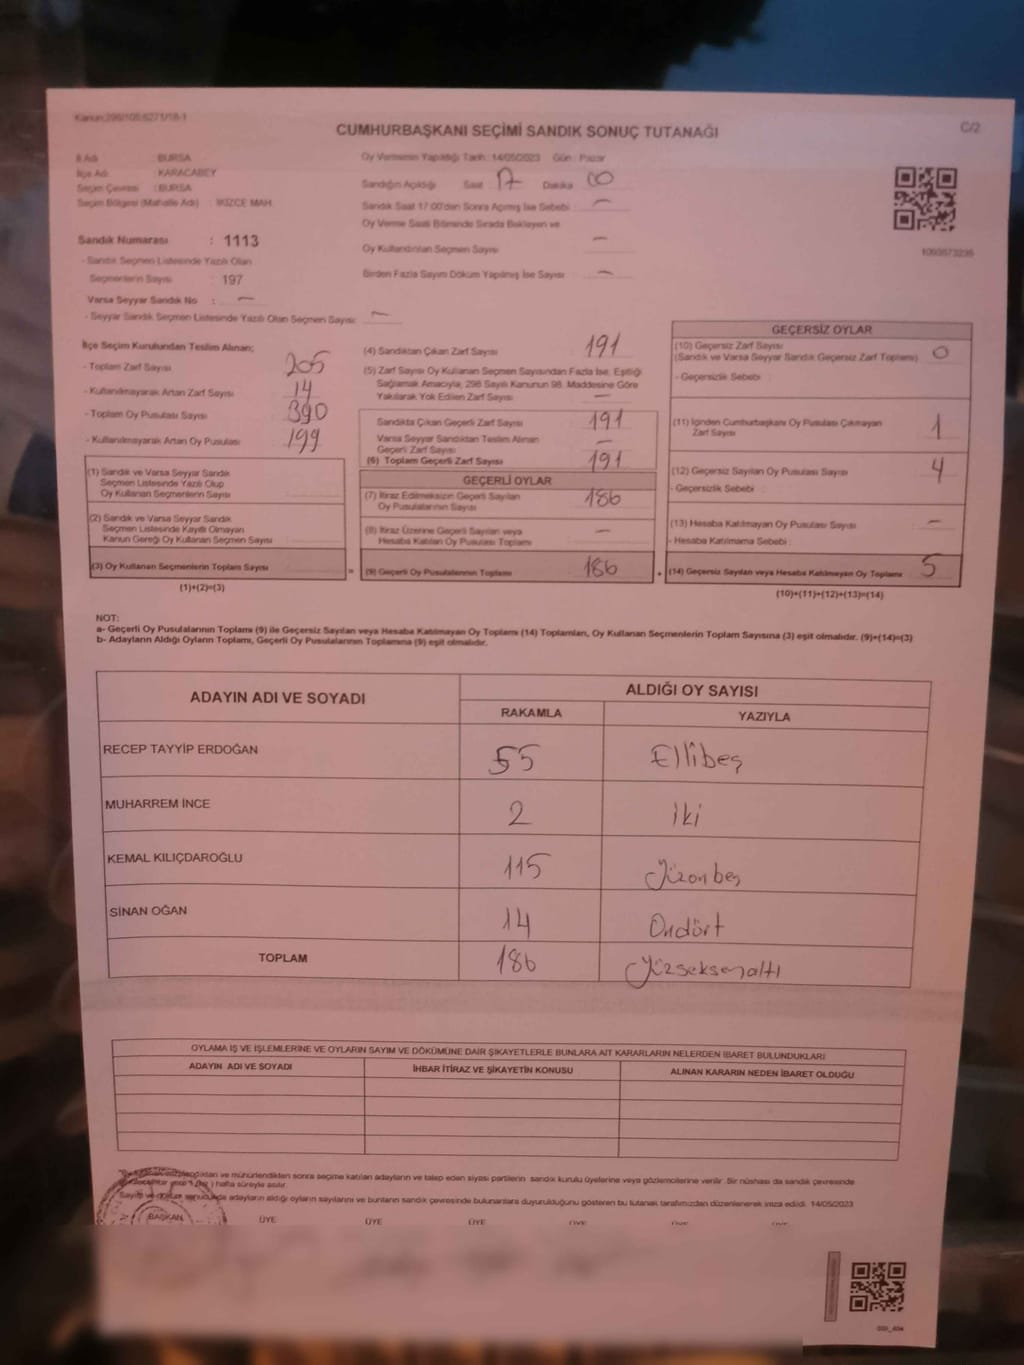 Kanun:298/105;6271/18-1
CUMHURBAŞKANI SEÇİMİ SANDIK SONUÇ TUTANAĞI
C/2
İl Adı : BURSA
İlçe Adı : KARACABEY
Seçim Çevresi : BURSA
Seçim Bölgesi (Mahalle Adı) : İKİZCE MAH.
Sandık Numarası : 1113
- Sandık Seçmen Listesinde Yazılı Olan
Seçmenlerin Sayısı : 197
Varsa Seyyar Sandık No : –
- Seyyar Sandık Seçmen Listesinde Yazılı Olan Seçmen Sayısı: –
Oy Vermenin Yapıldığı Tarih : 14/05/2023 Gün : Pazar
Sandığın Açıldığı Saat : 17 Dakika 00
Sandık Saat 17:00'den Sonra Açmış İse Sebebi : –
Oy Verme Saati Bitiminde Sırada Bekleyen ve
Oy Kullandırılan Seçmen Sayısı –
Birden Fazla Sayım Döküm Yapılmış İse Sayısı –
1093573235
İlçe Seçim Kurulundan Teslim Alınan;
- Toplam Zarf Sayısı 205
- Kullanılmayarak Artan Zarf Sayısı 14
- Toplam Oy Pusulası Sayısı 390
- Kullanılmayarak Artan Oy Pusulası 199
(1) Sandık ve Varsa Seyyar Sandık
Seçmen Listesinde Yazılı Olup
Oy Kullanan Seçmenlerin Sayısı
(2) Sandık ve Varsa Seyyar Sandık
Seçmen Listesinde Kayıtlı Olmayan
Kanun Gereği Oy Kullanan Seçmen Sayısı
(3) Oy Kullanan Seçmenlerin Toplam Sayısı
(1)+(2)=(3)
(4) Sandıktan Çıkan Zarf Sayısı 191
(5) Zarf Sayısı Oy Kullanan Seçmen Sayısından Fazla İse, Eşitliği
Sağlamak Amacıyla, 298 Sayılı Kanunun 98. Maddesine Göre
Yakılarak Yok Edilen Zarf Sayısı –
Sandıkta Çıkan Geçerli Zarf Sayısı 191
Varsa Seyyar Sandıktan Teslim Alınan
Geçerli Zarf Sayısı –
(6) Toplam Geçerli Zarf Sayısı 191
GEÇERLİ OYLAR
(7) İtiraz Edilmeksizin Geçerli Sayılan
Oy Pusulalarının Sayısı 186
(8) İtiraz Üzerine Geçerli Sayılan veya
Hesaba Katılan Oy Pusulası Toplamı –
= (9) Geçerli Oy Pusulalarının Toplamı 186
GEÇERSİZ OYLAR
(10) Geçersiz Zarf Sayısı
(Sandık ve Varsa Seyyar Sandık Geçersiz Zarf Toplamı) 0
- Geçersizlik Sebebi :
(11) İçinden Cumhurbaşkanı Oy Pusulası Çıkmayan
Zarf Sayısı 1
(12) Geçersiz Sayılan Oy Pusulası Sayısı 4
- Geçersizlik Sebebi :
(13) Hesaba Katılmayan Oy Pusulası Sayısı –
- Hesaba Katılmama Sebebi :
+ (14) Geçersiz Sayılan veya Hesaba Katılmayan Oy Toplamı 5
(10)+(11)+(12)+(13)=(14)
NOT:
a- Geçerli Oy Pusulalarının Toplamı (9) ile Geçersiz Sayılan veya Hesaba Katılmayan Oy Toplamı (14) Toplamları, Oy Kullanan Seçmenlerin Toplam Sayısına (3) eşit olmalıdır. (9)+(14)=(3)
b- Adayların Aldığı Oyların Toplamı, Geçerli Oy Pusulalarının Toplamına (9) eşit olmalıdır.
ADAYIN ADI VE SOYADI
ALDIĞI OY SAYISI
RAKAMLA YAZIYLA
RECEP TAYYİP ERDOĞAN 55 Ellibeş
MUHARREM İNCE 2 İki
KEMAL KILIÇDAROĞLU 115 Yüzonbeş
SİNAN OĞAN 14 Ondört
TOPLAM 186 Yüzseksenaltı
OYLAMA İŞ VE İŞLEMLERİNE VE OYLARIN SAYIM VE DÖKÜMÜNE DAİR ŞİKAYETLERLE BUNLARA AİT KARARLARIN NELERDEN İBARET BULUNDUKLARI
ADAYIN ADI VE SOYADI İHBAR İTİRAZ VE ŞİKAYETİN KONUSU ALINAN KARARIN NEDEN İBARET OLDUĞU
ve mühürlendikten sonra seçime katılan adayların ve talep eden siyasi partilerin sandık kurulu üyelerine veya gözlemcilerine verilir. Bir nüshası da sandık çevresinde
hafta süreyle asılır.
Sayım ve döküm sonucunda adayların aldığı oyların sayılarını ve bunların sandık çevresinde bulunanlara duyurulduğunu gösteren bu tutanak tarafımızdan düzenlenerek imza edildi. 14/05/2023
BAŞKAN ÜYE ÜYE ÜYE ÜYE ÜYE ÜYE